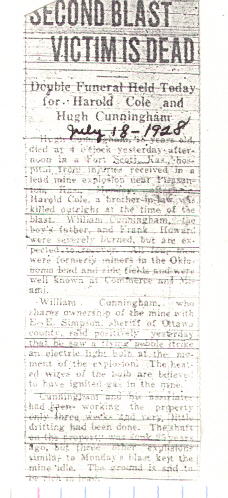 SECOND BLAST
VICTIM IS DEAD
Double Funeral Held Today
for Harold Cole and
Hugh Cunningham
July 18-1928
Hugh Cunningham, 18 years old,
died at 4 o'clock yesterday after-
noon in a Fort Scott, Kas., hos-
pital from injuries received in a
lead mine explosion near
Harold Cole, a brother-in-law, was
killed outright at the time of the
blast. William Cunningham, the
boy's father, and Frank Howard
were severely burned, but are ex-
pected to
were formerly miners in the Okla-
homa lead and zinc fields and were
well known at Commerce and Mi-
ami.
William Cunningham, who
shares ownership of the mine with
E. E. Simpson, sheriff of Ottawa
county, said positively yesterday
that he saw a
an electric light bulb at the mo-
ment of the explosion. The heat-
ed wires of the bulb are believed
to have ignited gas in the mine.
Cunningham and his associates
had been working the property
only three weeks and very little
drifting had been done. The shaft
on the property was sunk years
ago, but three other explosions
similar to Monday's blast kept the
mine idle. The ground is said to
be rich in lead.